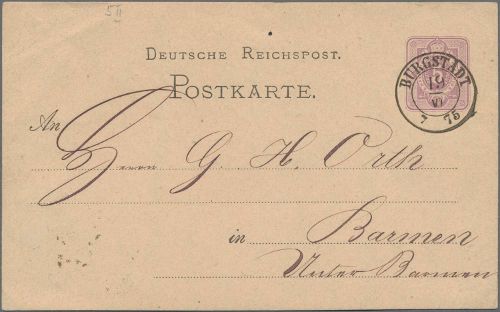 5II
DEUTSCHE REICHSPOST.
POSTKARTE.
BURGSTÄDT
19
VI
7 75
An
Herrn G. H. Orth
in Barmen
Unter Barmen